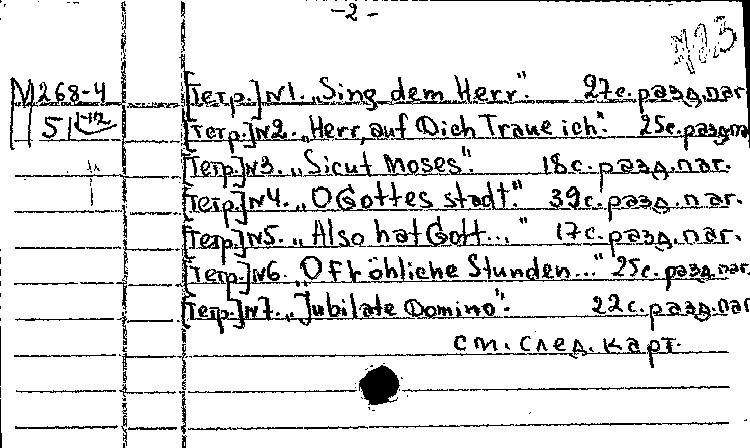 -2-
М 268-4
5
[Тетр.] №1. „Sing dem Herr". 27с. разд. паг.
[Тетр.] №2. „Herr, auf Dich Traue ich". 25с. разд. па
[Тетр.] №3. „Sicut Moses". 18с. разд. паг.
[Тетр.] №4. „O Gottes stadt." 39с. разд. паг.
[Тетр.] №5. „Also hat Gott..." 17с. разд. паг.
[Тетр.] №6. „O Fröhliche Stunden..." 25с. разд. паг
[Тетр.] №7. „Jubilate Domino". 22с. разд. паг
см. след. карт.